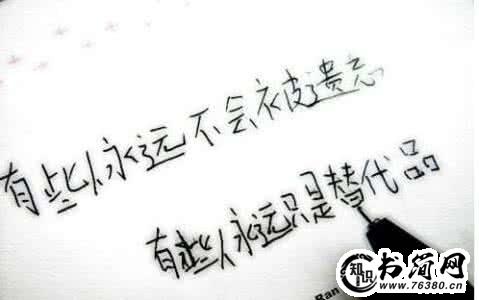 有些人永远不会被遗忘
有些人永远只是替代品
知识
书简网
www.76380.cn
Ran